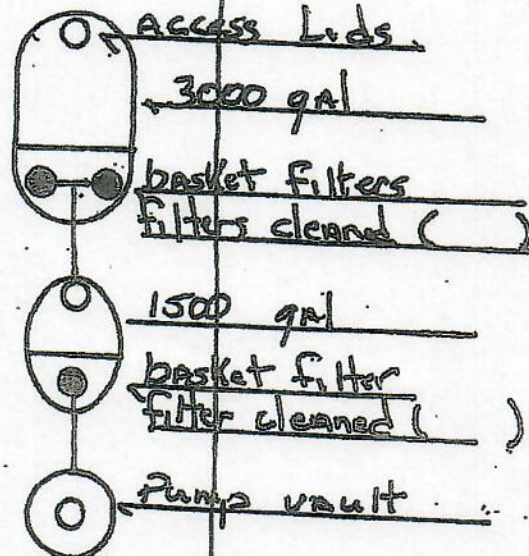 Access Lids
3000 gal
basket filters
filters cleaned (     )
1500 gal
basket filter
filter cleaned (     )
Pump vault